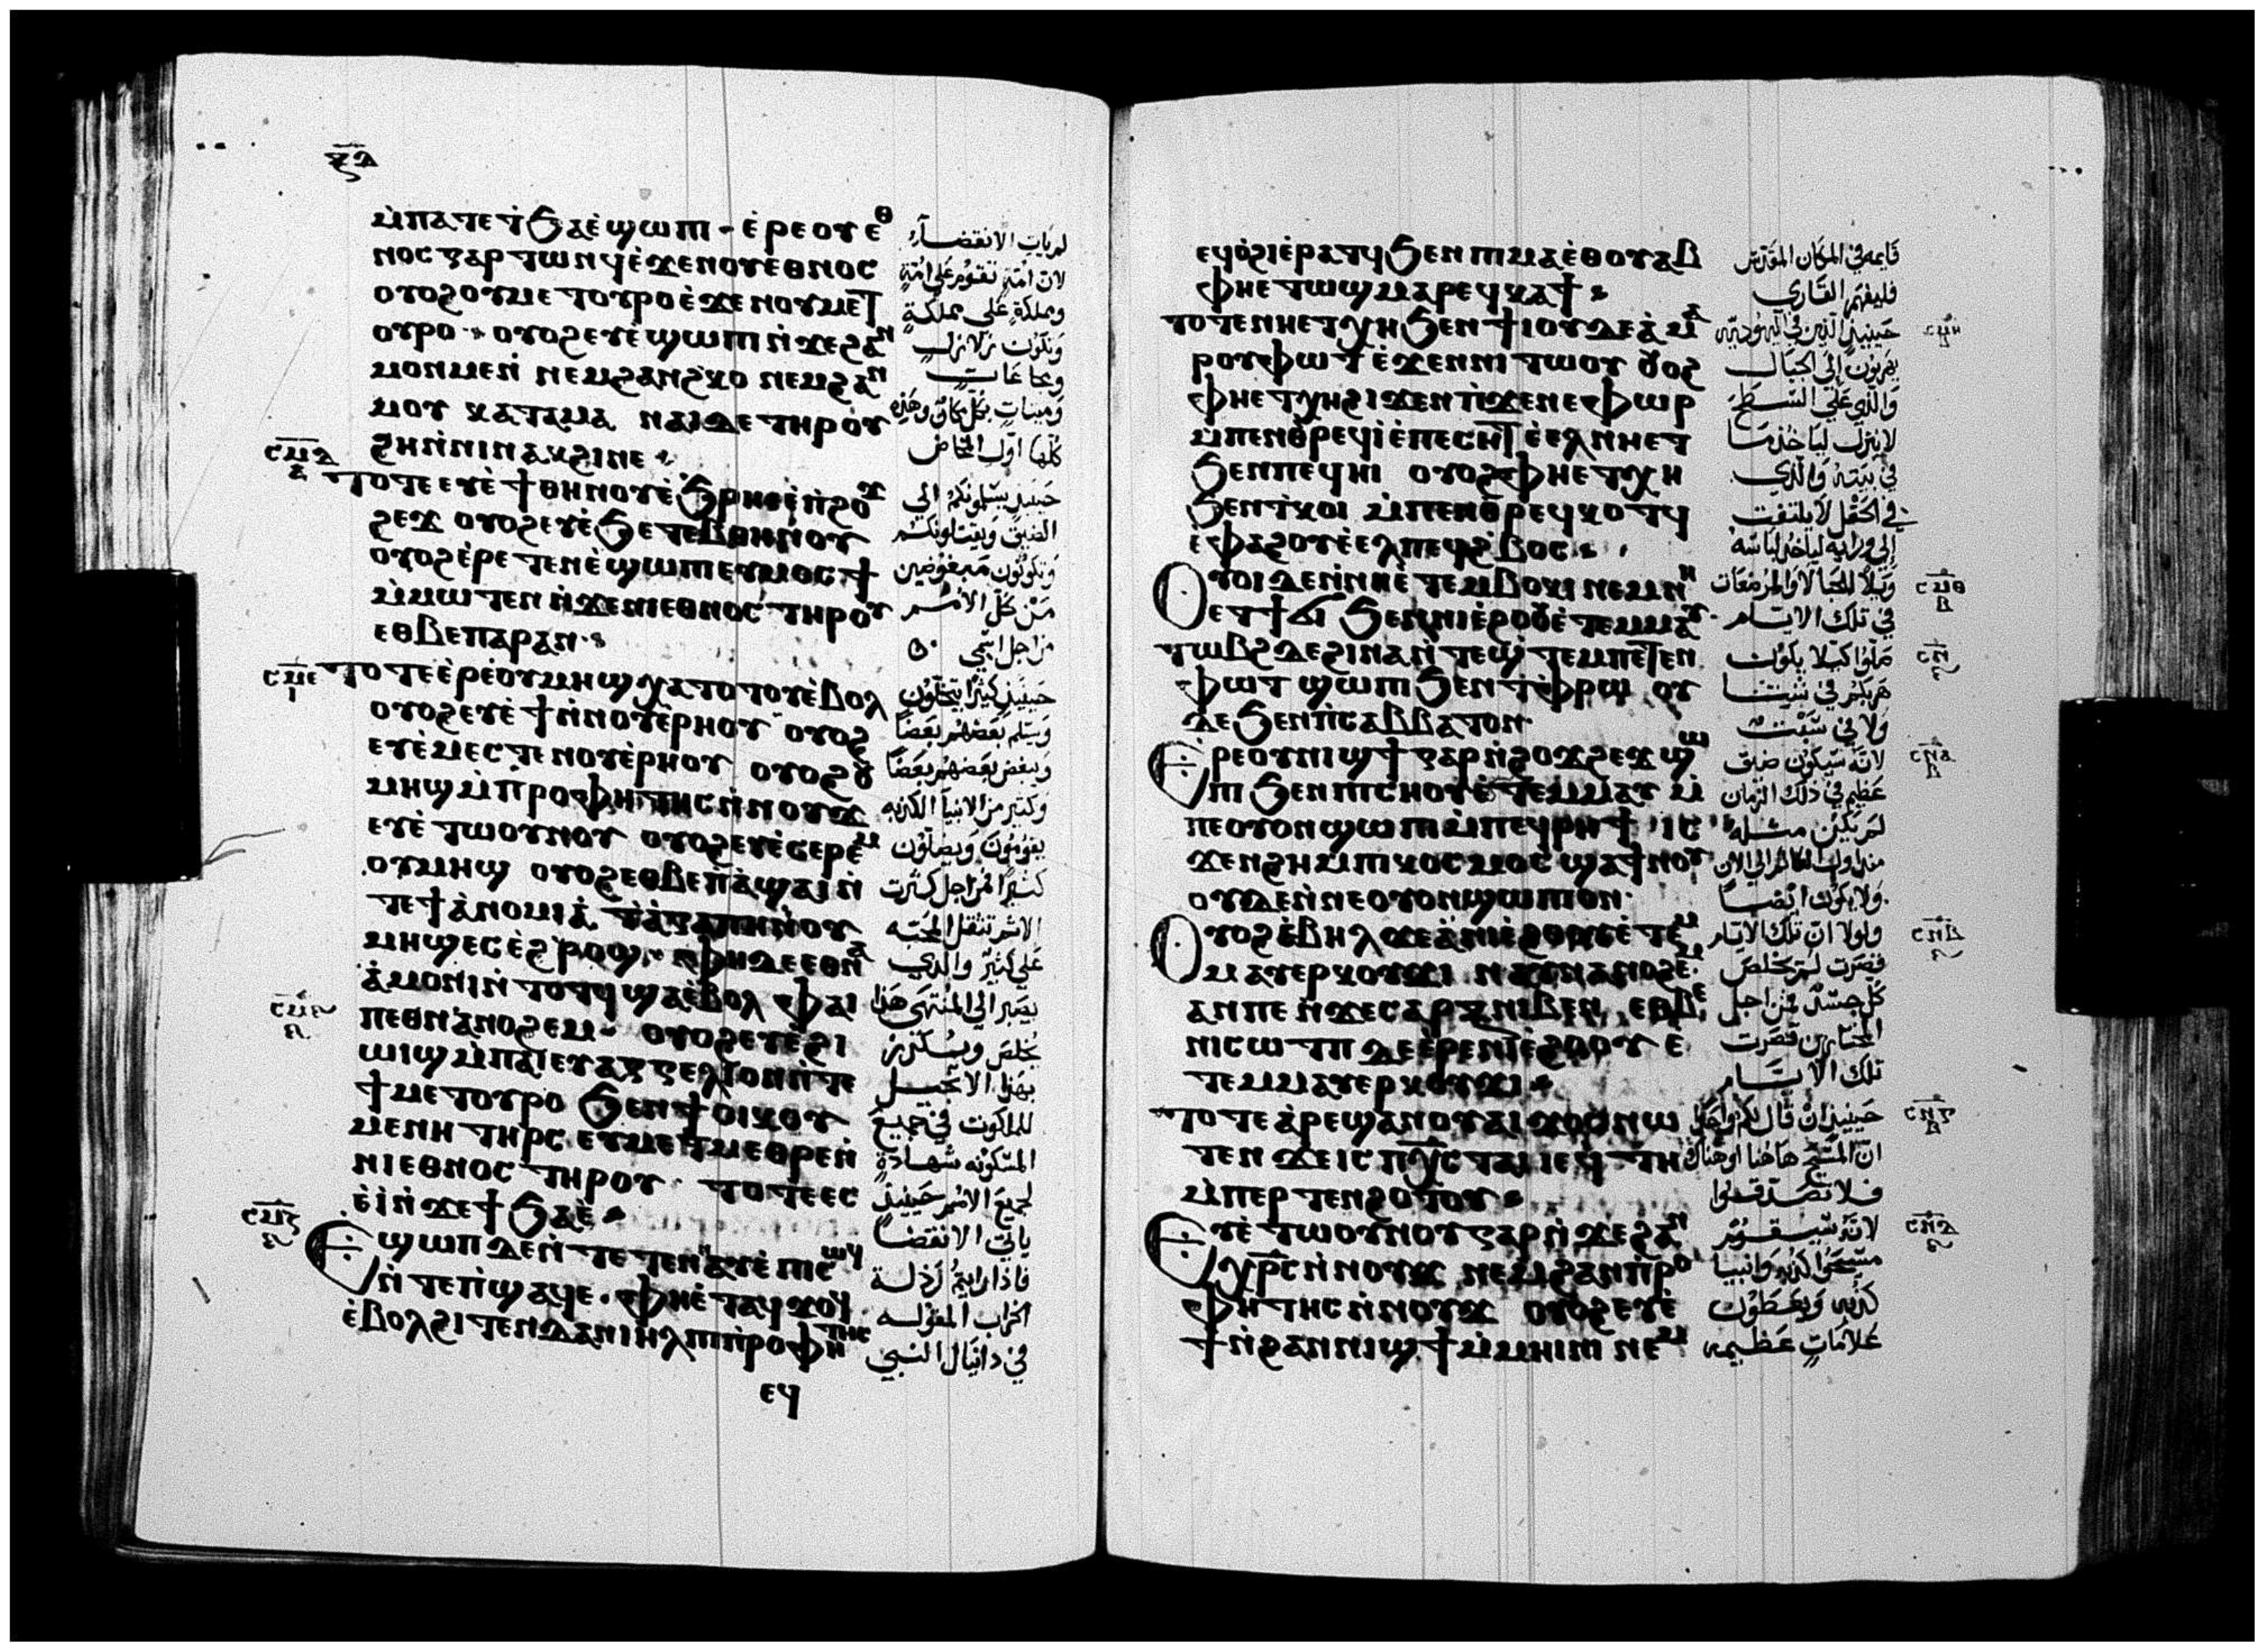 ⲙ̀ⲡⲁⲧⲉϯϧⲁⲉ̀ ϣⲱⲡⲓ · ⲉ̀ⲣⲉⲟⲩⲉⲑ
ⲛⲟⲥ ⲅⲁⲣ ⲧⲱⲛϥ ⲉ̀ϫⲉⲛⲟⲩⲉⲑⲛⲟⲥ
ⲟⲩⲟϩ ⲟⲩⲙⲉⲧⲟⲩⲣⲟ ⲉ̀ϫⲉⲛⲟⲩⲙⲉⲧ
ⲟⲩⲣⲟ · ⲟⲩⲟϩ ⲉⲩⲉ̀ϣⲱⲡⲓ ⲛ̀ϫⲉϩⲁⲛ
ⲙⲟⲛⲙⲉⲛ ⲛⲉⲙϩⲁⲛϩⲕⲟ ⲛⲉⲙϩⲁⲛ
ⲙⲟⲩ ⲕⲁⲧⲁⲙⲁ ⲛⲁⲓⲇⲉ ⲧⲏⲣⲟⲩ
ϩⲏ ⲛ̀ⲛⲓⲛⲁⲕϩⲓ ⲛⲉ
ⲥⲙⲇ
ⲧⲟⲧⲉ ⲉⲩⲉ̀ϯⲑⲏⲛⲟⲩ ⲉ̀ϧⲣⲏⲓ ⲉ̀ⲡϩⲟϫ
ϩⲉϫ ⲟⲩⲟϩ ⲉⲩⲉ̀ϧⲉⲧⲉⲃⲑⲏⲛⲟⲩ
ⲟⲩⲟϩ ⲉ̀ⲣⲉⲧⲉⲛⲉ̀ϣⲱⲡⲓ ⲉⲩⲙⲟⲥϯ
ⲙ̀ⲙⲱⲧⲉⲛ ⲛ̀ϫⲉⲛⲓⲉⲑⲛⲟⲥ ⲧⲏⲣⲟⲩ
ⲉⲑⲃⲉⲡⲁⲣⲁⲛ
ⲥⲙⲉ
ⲓ
ⲧⲟⲧⲉ ⲉ̀ⲣⲉⲟⲩⲙⲏϣ ⲭⲁⲧⲟⲧⲟⲩ ⲉ̀ⲃⲟⲗ
ⲟⲩⲟϩ ⲉⲩⲉ̀ϯ ⲛ̀ⲛⲟⲩⲉ̀ⲣⲏⲟⲩ ⲟⲩⲟϩ
ⲉⲩⲉ̀ⲙⲉⲥⲧⲉ ⲛⲟⲩⲉ̀ⲣⲏⲟⲩ ⲟⲩⲟϩ ⲟⲩ
ⲙⲏϣ ⲙ̀ⲡⲣⲟⲫⲏⲧⲏⲥ ⲛ̀ⲛⲟⲩϫ
ⲉⲩⲉ̀ⲧⲱⲟⲩⲛⲟⲩ ⲟⲩⲟϩ ⲉⲩⲉ̀ⲥⲉⲣⲉⲙ
ⲟⲩⲙⲏϣ ⲟⲩⲟϩ ⲉⲑⲃⲉⲡⲁ̀ϣⲁⲓ ⲛ̀
ⲧⲉϯⲁ̀ⲛⲟⲙⲓⲁ̀ ϯⲁ̀ⲅⲁⲡⲏ ⲛ̀ⲟⲩ
ⲙⲏϣ ⲉⲥⲉ̀ϩⲣⲟϣ · ⲫⲏ ⲇⲉ ⲉⲑⲛⲁ
ⲁ̀ⲙⲟⲛⲓ ⲛ̀ⲧⲟⲧϥ ϣⲁⲉ̀ⲃⲟⲗ ⲫⲁⲓ
ⲡⲉⲑⲛⲁⲛⲟϩⲉⲙ · ⲟⲩⲟϩ ⲉⲩⲉ̀ϩⲓ
ⲱⲓϣ ⲙ̀ⲡⲁⲓⲉⲩⲁⲅⲅⲉⲗⲓⲟⲛ ⲛ̀ⲧⲉ
ϯⲙⲉⲧⲟⲩⲣⲟ ϧⲉⲛϯⲟⲓⲕⲟⲩ
ⲙⲉⲛⲏ ⲧⲏⲣⲥ ⲉⲩⲙⲉⲧⲙⲉⲑⲣⲉ ⲛ̀
ⲛⲓⲉⲑⲛⲟⲥ ⲧⲏⲣⲟⲩ · ⲧⲟⲧⲉ ⲉⲥ
ⲉ̀ⲓ̀ ⲛ̀ϫⲉϯϧⲁⲉ̀
ⲥⲙⲍ
Ⲉϣⲱⲡ ⲇⲉ ⲛ̀ⲧⲉⲧⲉⲛⲛⲁⲩ ⲉ̀ⲡⲓⲥⲱϥ
ⲛ̀ⲧⲉⲡϣⲁϥⲉ · ⲫⲏⲉ̀ⲧⲁϥϫⲟϥ
ⲉ̀ⲃⲟⲗϩⲓⲧⲉⲛ ⲇⲁⲛⲓⲏⲗ ⲡⲓⲡⲣⲟⲫⲏⲧⲏⲥ
ⲉϥ
لم يات الانقضآء
لان امّة تقوم على امّة
ومملكة على مملكة
وتكون زلازل
ومجاعات
وميتات بكل مكان وهذه
كلها اول المخاض
حينيذ يسلمونكم الى
الضيق ويقتلونكم
وتكونون مبغوضين
من كل الامم
من اجل اسمي
حينيذ كثيرًا يتخلون
ويسلم بعضهم بعضًا
ويبغض بعضهم بعضًا
وكثير من الانبيا الكذبه
يقومون ويضلون
كثيرًا ومن اجل كثرت
الاثم تثقل المحبه
على كثير والذي
يصبر الى المنتهى هذا
يخلص ويكرز
بهذا الانجيل
للملكوت في جميع
المسكونه شهادة
لجميع الامم حينيذ
ياتي الانقضا
فاذا رايتم رذلة
الخراب المقوله
في دانيال النبي
ⲉϥⲟ̀ϩⲓ ⲉ̀ⲣⲁⲧϥ ϧⲉⲛⲡⲓⲙⲁ ⲉ̀ⲑⲟⲩⲁⲃ
ⲫⲏⲉⲧⲱϣ ⲙⲁⲣⲉϥⲕⲁϯ
ⲧⲟⲧⲉ ⲛⲏⲉⲧⲭⲏ ϧⲉⲛϯⲓⲟⲩⲇⲉⲁ̀ ⲙⲁ
ⲣⲟⲩⲫⲱⲧ ⲉ̀ϫⲉⲛⲛⲓⲧⲱⲟⲩ ⲟⲩⲟϩ
ⲫⲏⲉⲧⲭⲏ ϩⲓϫⲉⲛⲡⲓϫⲉⲛⲉⲫⲱⲣ
ⲙ̀ⲡⲉⲛⲑⲣⲉϥⲓ̀ ⲉ̀ⲡⲉⲥⲏⲧ ⲉ̀ⲉⲗ ⲛⲏⲉⲧ
ϧⲉⲛⲡⲉϥⲏⲓ ⲟⲩⲟϩ ⲫⲏⲉⲧⲭⲏ
ϧⲉⲛⲧⲕⲟⲓ ⲙ̀ⲡⲉⲛⲑⲣⲉϥⲕⲟⲧϥ
ⲉ̀ⲫⲁϩⲟⲩ ⲉ̀ⲉⲗⲡⲉϥϩ̀ⲃⲟⲥ
Ⲟⲩⲟⲓ ⲇⲉ ⲛ̀ⲛⲏⲉ̀ⲧⲉⲙⲃⲟⲕⲓ ⲛⲉⲙⲛⲏ
ⲉⲧϯϭⲓ ϧⲉⲛⲛⲓⲉ̀ϩⲟⲟⲩ ⲉ̀ⲧⲉⲙⲙⲁⲩ
ⲧⲱⲃϩ ⲇⲉ ϩⲓⲛⲁ ⲛ̀ⲧⲉϣⲧⲉⲙⲡⲉⲧⲉⲛ
ⲫⲱⲧ ϣⲱⲡⲓ ϧⲉⲛⲧⲫⲣⲱ ⲟⲩ
ⲇⲉ ϧⲉⲛⲡⲥⲁⲃⲃⲁⲧⲟⲛ
Ⲉⲣⲉⲟⲩⲛⲓϣϯ ⲅⲁⲣ ⲛ̀ϩⲟϫϩⲉϫ ϣⲱ
ⲡⲓ ϧⲉⲛⲡⲓⲥⲏⲟⲩ ⲉ̀ⲧⲉⲙⲙⲁⲩ ⲙ̀
ⲡⲉⲟⲩⲟⲛ ϣⲱⲡⲓ ⲙ̀ⲡⲉϥⲣⲏϯ ⲓⲥ
ϫⲉⲛϩⲏ ⲙ̀ⲡⲓⲕⲟⲥⲙⲟⲥ ϣⲁϯⲛⲟⲩ
ⲟⲩⲇⲉ ⲛ̀ⲛⲉⲟⲩⲟⲛ ϣⲱⲡⲓ ⲟⲛ
Ⲟⲩⲟϩ ⲉ̀ⲃⲏⲗ ϫⲉ ⲁ̀ⲛⲓⲉ̀ϩⲟⲟⲩ ⲉ̀ⲧⲉⲙ
ⲙⲁⲩ ⲉⲣⲕⲟⲩϫⲓ ⲛⲁϥⲛⲁⲛⲟϩⲉⲙ
ⲁⲛⲡⲉ ⲛ̀ϫⲉⲥⲁⲣⲝ ⲛⲓⲃⲉⲛ ⲉⲑⲃⲉ
ⲛⲓⲥⲱⲧⲡ ⲇⲉ ⲉ̀ⲣⲉⲛⲓⲉ̀ϩⲟⲟⲩ ⲉ̀
ⲧⲉⲙⲙⲁⲩ ⲉⲣⲕⲟⲩϫⲓ
ⲧⲟⲧⲉ ⲁ̀ⲣⲉϣⲁⲛⲟⲩⲁⲓ ϫⲟⲥ ⲛⲱ
ⲧⲉⲛ ϫⲉ ⲓⲥ ⲡⲭ̅ⲥ̅ ⲧⲁⲓ ⲓⲉ ϥⲧⲏ
ⲙ̀ⲡⲉⲣⲧⲉⲛϩⲟⲩⲧⲟⲩ
Ⲉⲩⲉ̀ⲧⲱⲟⲩⲛⲟⲩ ⲅⲁⲣ ⲛ̀ϫⲉϩⲁⲛ
ⲭⲣ̅ⲥ̅ ⲛ̀ⲛⲟⲩϫ ⲛⲉⲙϩⲁⲛⲡⲣⲟ
ⲫⲏⲧⲏⲥ ⲛ̀ⲛⲟⲩϫ ⲟⲩⲟϩ ⲉⲩⲉ̀
ϯ ⲛ̀ϩⲁⲛⲛⲓϣϯ ⲙ̀ⲙⲏⲓⲛⲓ ⲛⲉⲙ
قايمه في المكان المقدس
فليفهم القاري
حينيذ الذين في اليهوديه
يهربون الى الجبال
والذي على السطح
لا ينزل لياخذ ما
في بيته والذي
في الحقل لا يلتفت
الى ورايه لياخذ لباسه
ويلاً للحبالا والمرضعات
في تلك الايام
صلوا كيلا يكون
هربكم في شتا
ولا في سبت
لانه سيكون ضيق
عظيم في ذلك الزمان
لم يكن مثله
منذ اول العالم الى الان
ولا يكون ايضًا
ولولا ان تلك الايام
قصرت لم يخلص
كل جسد فمن اجل
المختارين قصرت
تلك الايام
حينيذ ان قال لكم واحد
ان المسيح هاهنا او هناك
فلا تصدقوا
لانه سيقوم
مسحوا كذبه وانبيا
كذبه ويعطون
علامات عظيمه
ⲥⲙⲏ
ⲥⲙⲑ
ⲃ
ⲥⲛ
ⲥⲛⲁ
ⲃ
ⲥⲛⲃ
ⲥⲛⲅ
ⲥⲛⲇ